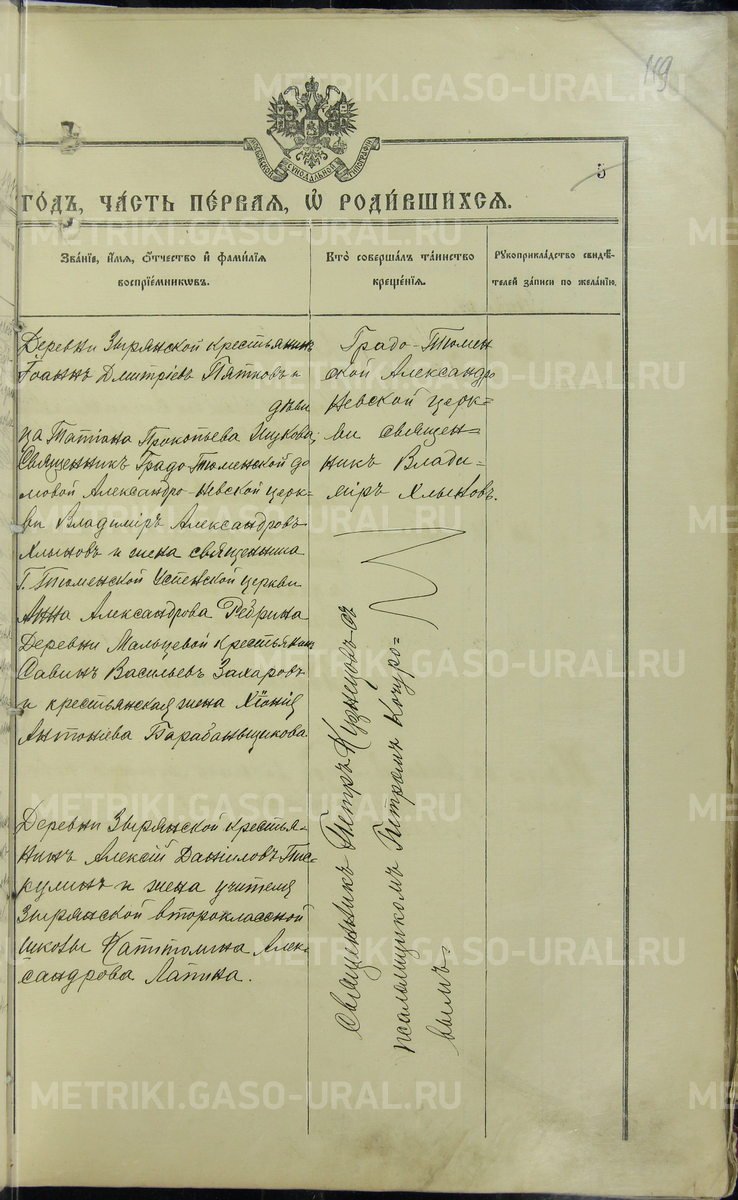 119
METRIKI.GASO-URAL.RU
МОСКОВСКОЙ СѴНОДАЛЬНОЙ ТИПОГРАФІИ
5
ГОДЪ, ЧАСТЬ ПЕРВАЯ, Ѡ РОДИВШИХСЯ.
Званіе, имя, отчество и фамилія
воспріемниковъ.
Кто совершалъ таинство
крещенія.
Рукоприкладство свидѣ-
телей записи по желанію.
Деревни Зырянской крестьянинъ
Іоаннъ Дмитріевъ Пятковъ и
дѣви
ца Татіана Прокопьева
Священникъ Градо-Тюменской до
мовой Александро-Невской церк-
ви Владиміръ Александровъ
Хлыновъ и жена священника
Г. Тюменской Успенской церкви
Анна Александрова Ребрина
Деревни Мальцевой крестьянинъ
Савинъ Васильевъ Захаровъ
и крестьянская жена Хіонія
Антоніева Барабаньщикова
Деревни Зырянской крестья-
нинъ Алексій Даниловъ Пис-
кулинъ и жена учителя
Зырянской второклассной
школы Капитолина Алек-
сандрова Лапина.
Градо-Тюмен
ской Александро
Невской церк=
ви священ=
никъ Влади-
міръ Хлыновъ.
Священникъ Петръ Кузнецовъ съ
псаломщикомъ Петромъ Кочуро=
вымъ.